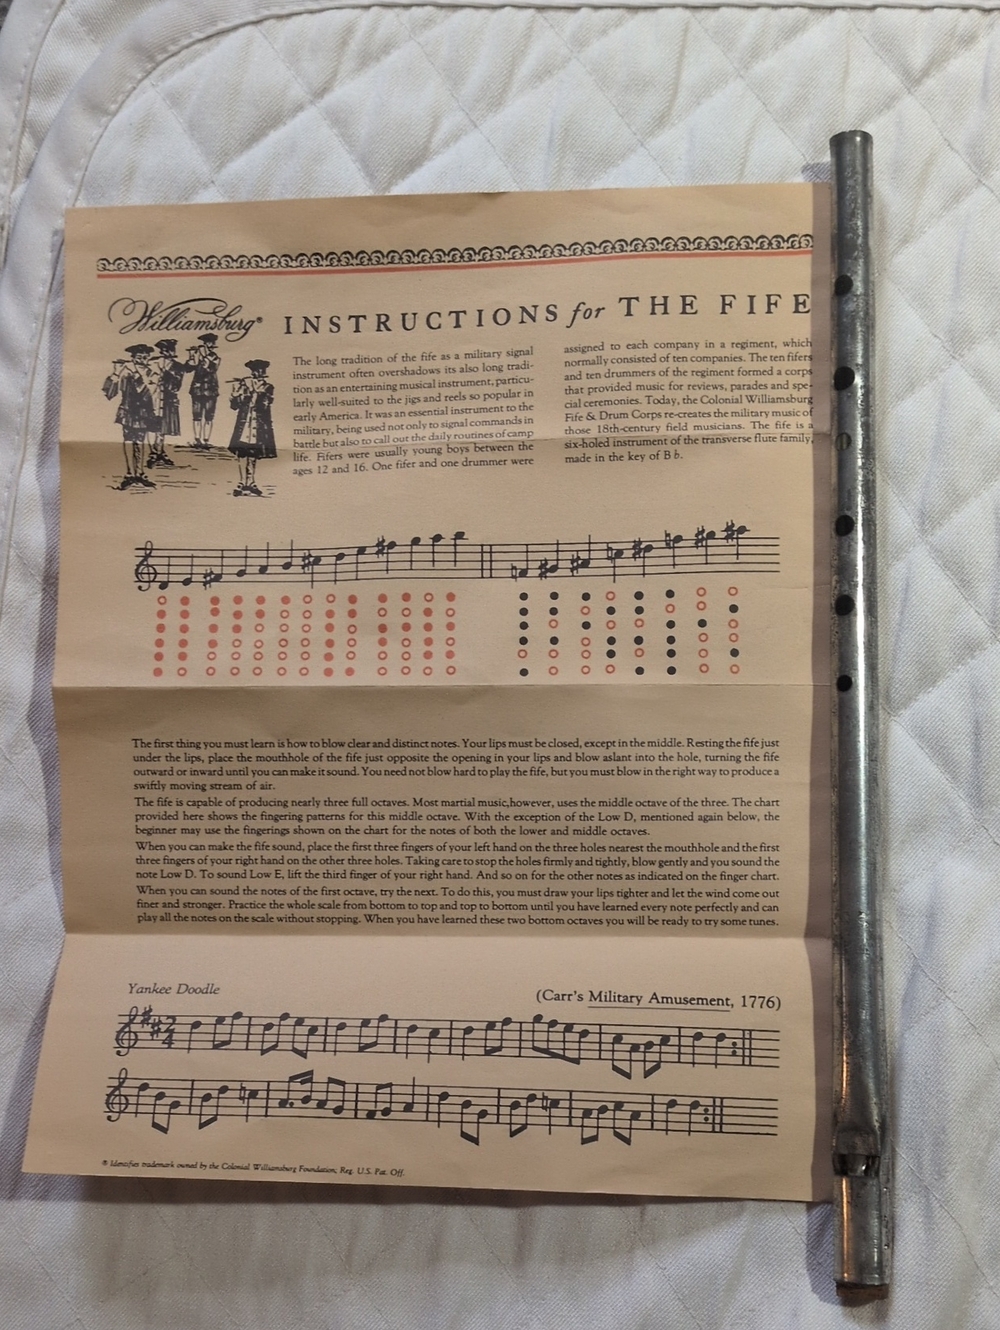 Williamsburg®
INSTRUCTIONS for THE FIFE
The long tradition of the fife as a military signal
instrument often overshadows its also long tradi-
tion as an entertaining musical instrument, particu-
larly well-suited to the jigs and reels so popular in
early America. It was an essential instrument to the
military, being used not only to signal commands in
battle but also to call out the daily routines of camp
life. Fifers were usually young boys between the
ages 12 and 16. One fifer and one drummer were
assigned to each company in a regiment, which
normally consisted of ten companies. The ten fifers
and ten drummers of the regiment formed a corps
that provided music for reviews, parades and spe-
cial ceremonies. Today, the Colonial Williamsburg
Fife & Drum Corps re-creates the military music of
those 18th-century field musicians. The fife is a
six-holed instrument of the transverse flute family,
made in the key of B♭.
The first thing you must learn is how to blow clear and distinct notes. Your lips must be closed, except in the middle. Resting the fife just
under the lips, place the mouthhole of the fife just opposite the opening in your lips and blow aslant into the hole, turning the fife
outward or inward until you can make it sound. You need not blow hard to play the fife, but you must blow in the right way to produce a
swiftly moving stream of air.
The fife is capable of producing nearly three full octaves. Most martial music,however, uses the middle octave of the three. The chart
provided here shows the fingering patterns for this middle octave. With the exception of the Low D, mentioned again below, the
beginner may use the fingerings shown on the chart for the notes of both the lower and middle octaves.
When you can make the fife sound, place the first three fingers of your left hand on the three holes nearest the mouthhole and the first
three fingers of your right hand on the other three holes. Taking care to stop the holes firmly and tightly, blow gently and you sound the
note Low D. To sound Low E, lift the third finger of your right hand. And so on for the other notes as indicated on the finger chart.
When you can sound the notes of the first octave, try the next. To do this, you must draw your lips tighter and let the wind come out
finer and stronger. Practice the whole scale from bottom to top and top to bottom until you have learned every note perfectly and can
play all the notes on the scale without stopping. When you have learned these two bottom octaves you will be ready to try some tunes.
Yankee Doodle
(Carr's Military Amusement, 1776)
2
4
® Identifies trademark owned by the Colonial Williamsburg Foundation, Reg. U.S. Pat. Off.